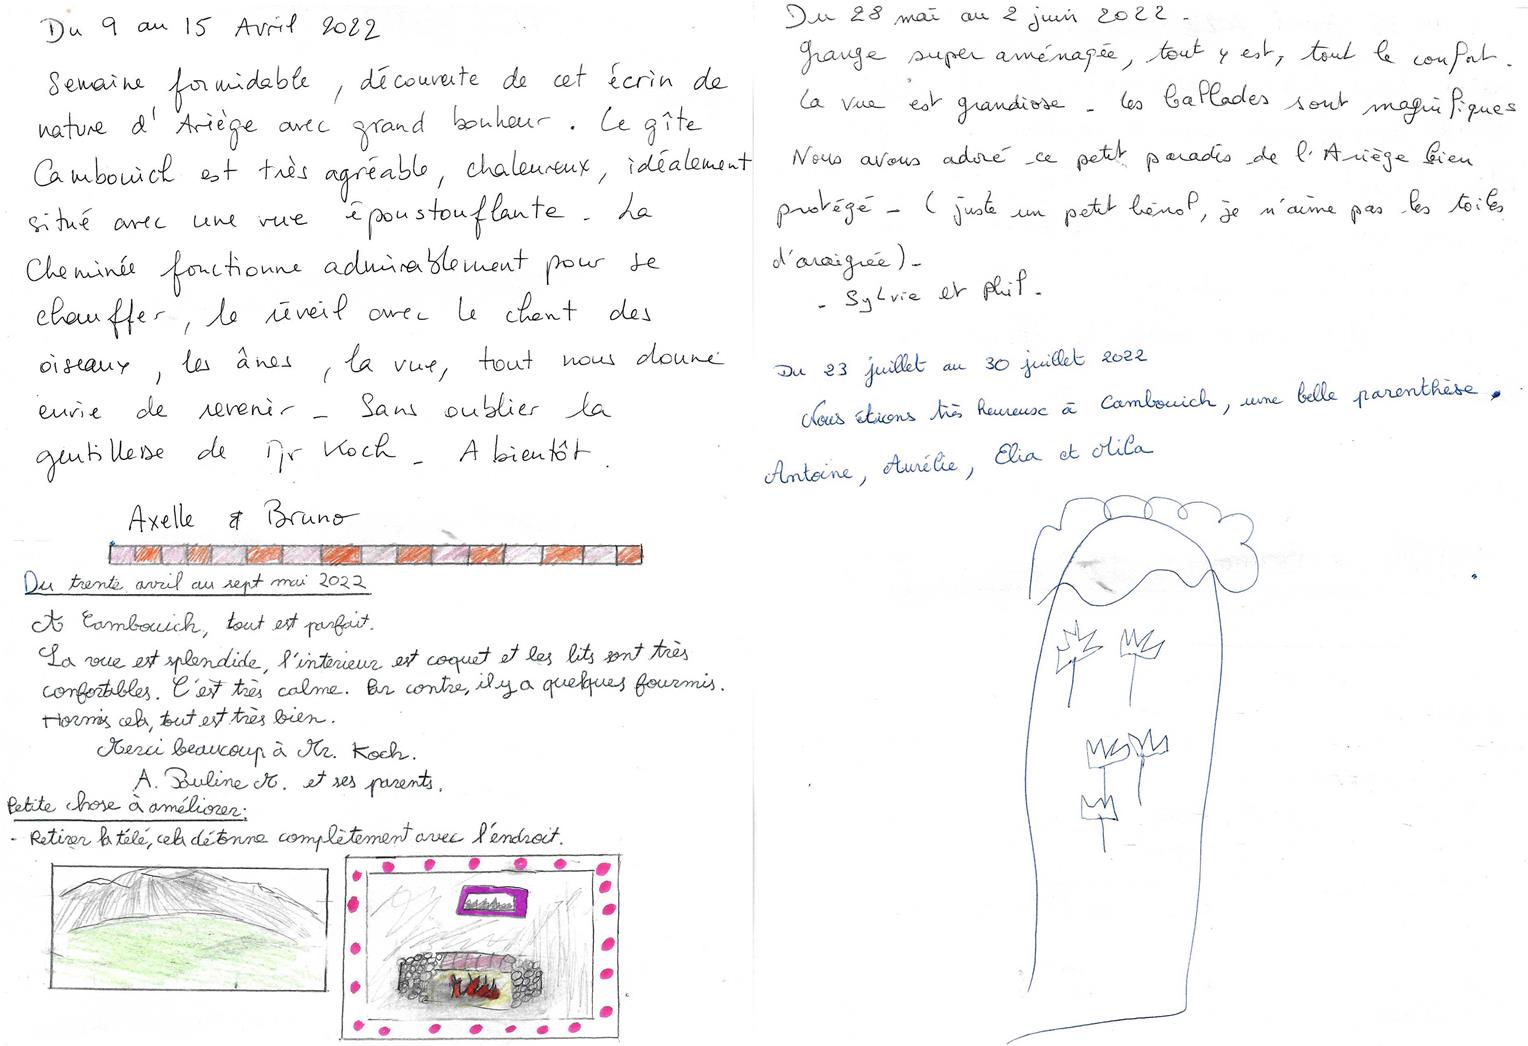 Du 9 au 15 Avril 2022
Semaine formidable, découverte de cet écrin de
nature d'Ariège avec grand bonheur. Le gîte
Cambouich est très agréable, chaleureux, idéalement
situé avec une vue époustouflante - La
Cheminée fonctionne admirablement pour se
chauffer, le réveil avec le chant des
oiseaux, les ânes, la vue, tout nous donne
envie de revenir - Sans oublier la
gentillesse de Mr Koch - A bientôt.
Axelle & Bruno
Du trente avril au sept mai 2022
A Cambouich, tout est parfait.
La vue est splendide, l'interieur est coquet et les lits sont très
confortables. C'est très calme. Par contre, il y a quelques fourmis.
Hormis cela, tout est très bien.
Merci beaucoup à Mr. Koch.
A. Pauline M. et ses parents.
Petite chose à améliorer:
- Retirer la télé, cela détonne complètement avec l'endroit.
Du 28 mai au 2 juin 2022 -
Grange super aménagée, tout y est, tout le confort.
La vue est grandiose - Les ballades sont magnifiques
Nous avons adoré ce petit paradis de l'Ariège bien
protégé - (juste un petit bémol, je n'aime pas les toiles
d'araignée) -
- Sylvie et Phil -
Du 23 juillet au 30 juillet 2022
Nous étions très heureux à Cambouich, une belle parenthèse.
Antoine, Aurélie, Elia et Mila